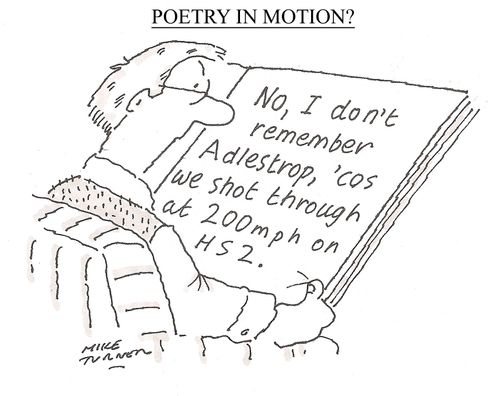 POETRY IN MOTION?
No, I don't
remember
Adlestrop, 'cos
we shot through
at 200mph on
HS2.
MIKE
TURNER